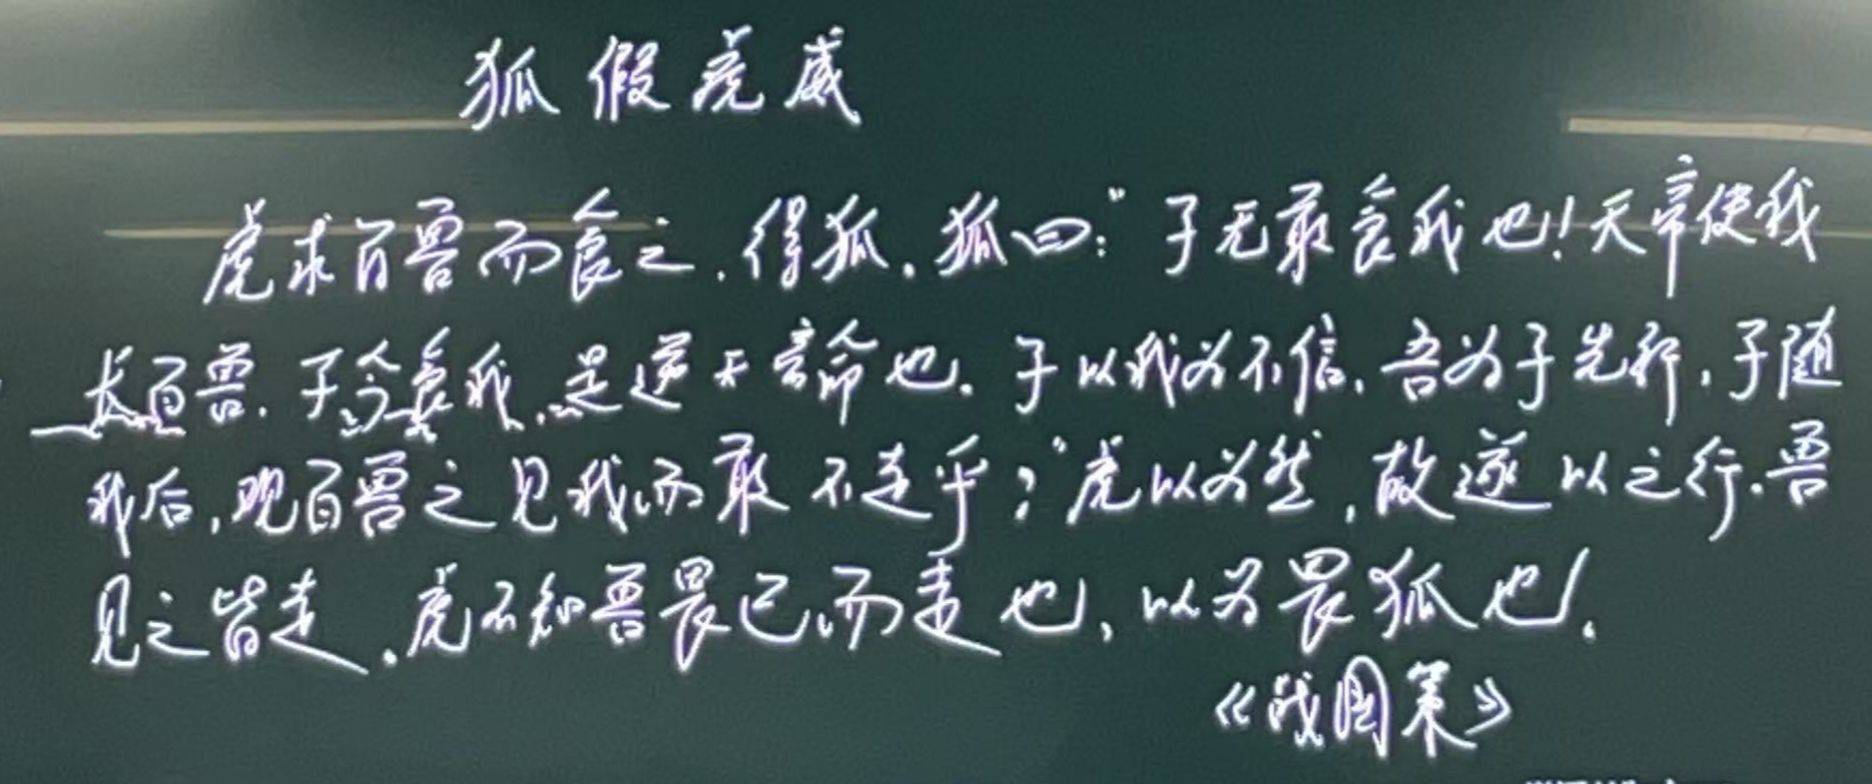 狐假虎威
虎求百兽而食之,得狐。狐曰:"子无敢食我也!天帝使我
长百兽.子今食我,是逆天帝命也.子以我为不信,吾为子先行,子随
我后,观百兽之见我而敢不走乎?"虎以为然,故遂以之行.兽
见之皆走.虎不知兽畏己而走也,以为畏狐也!.
《战国策》